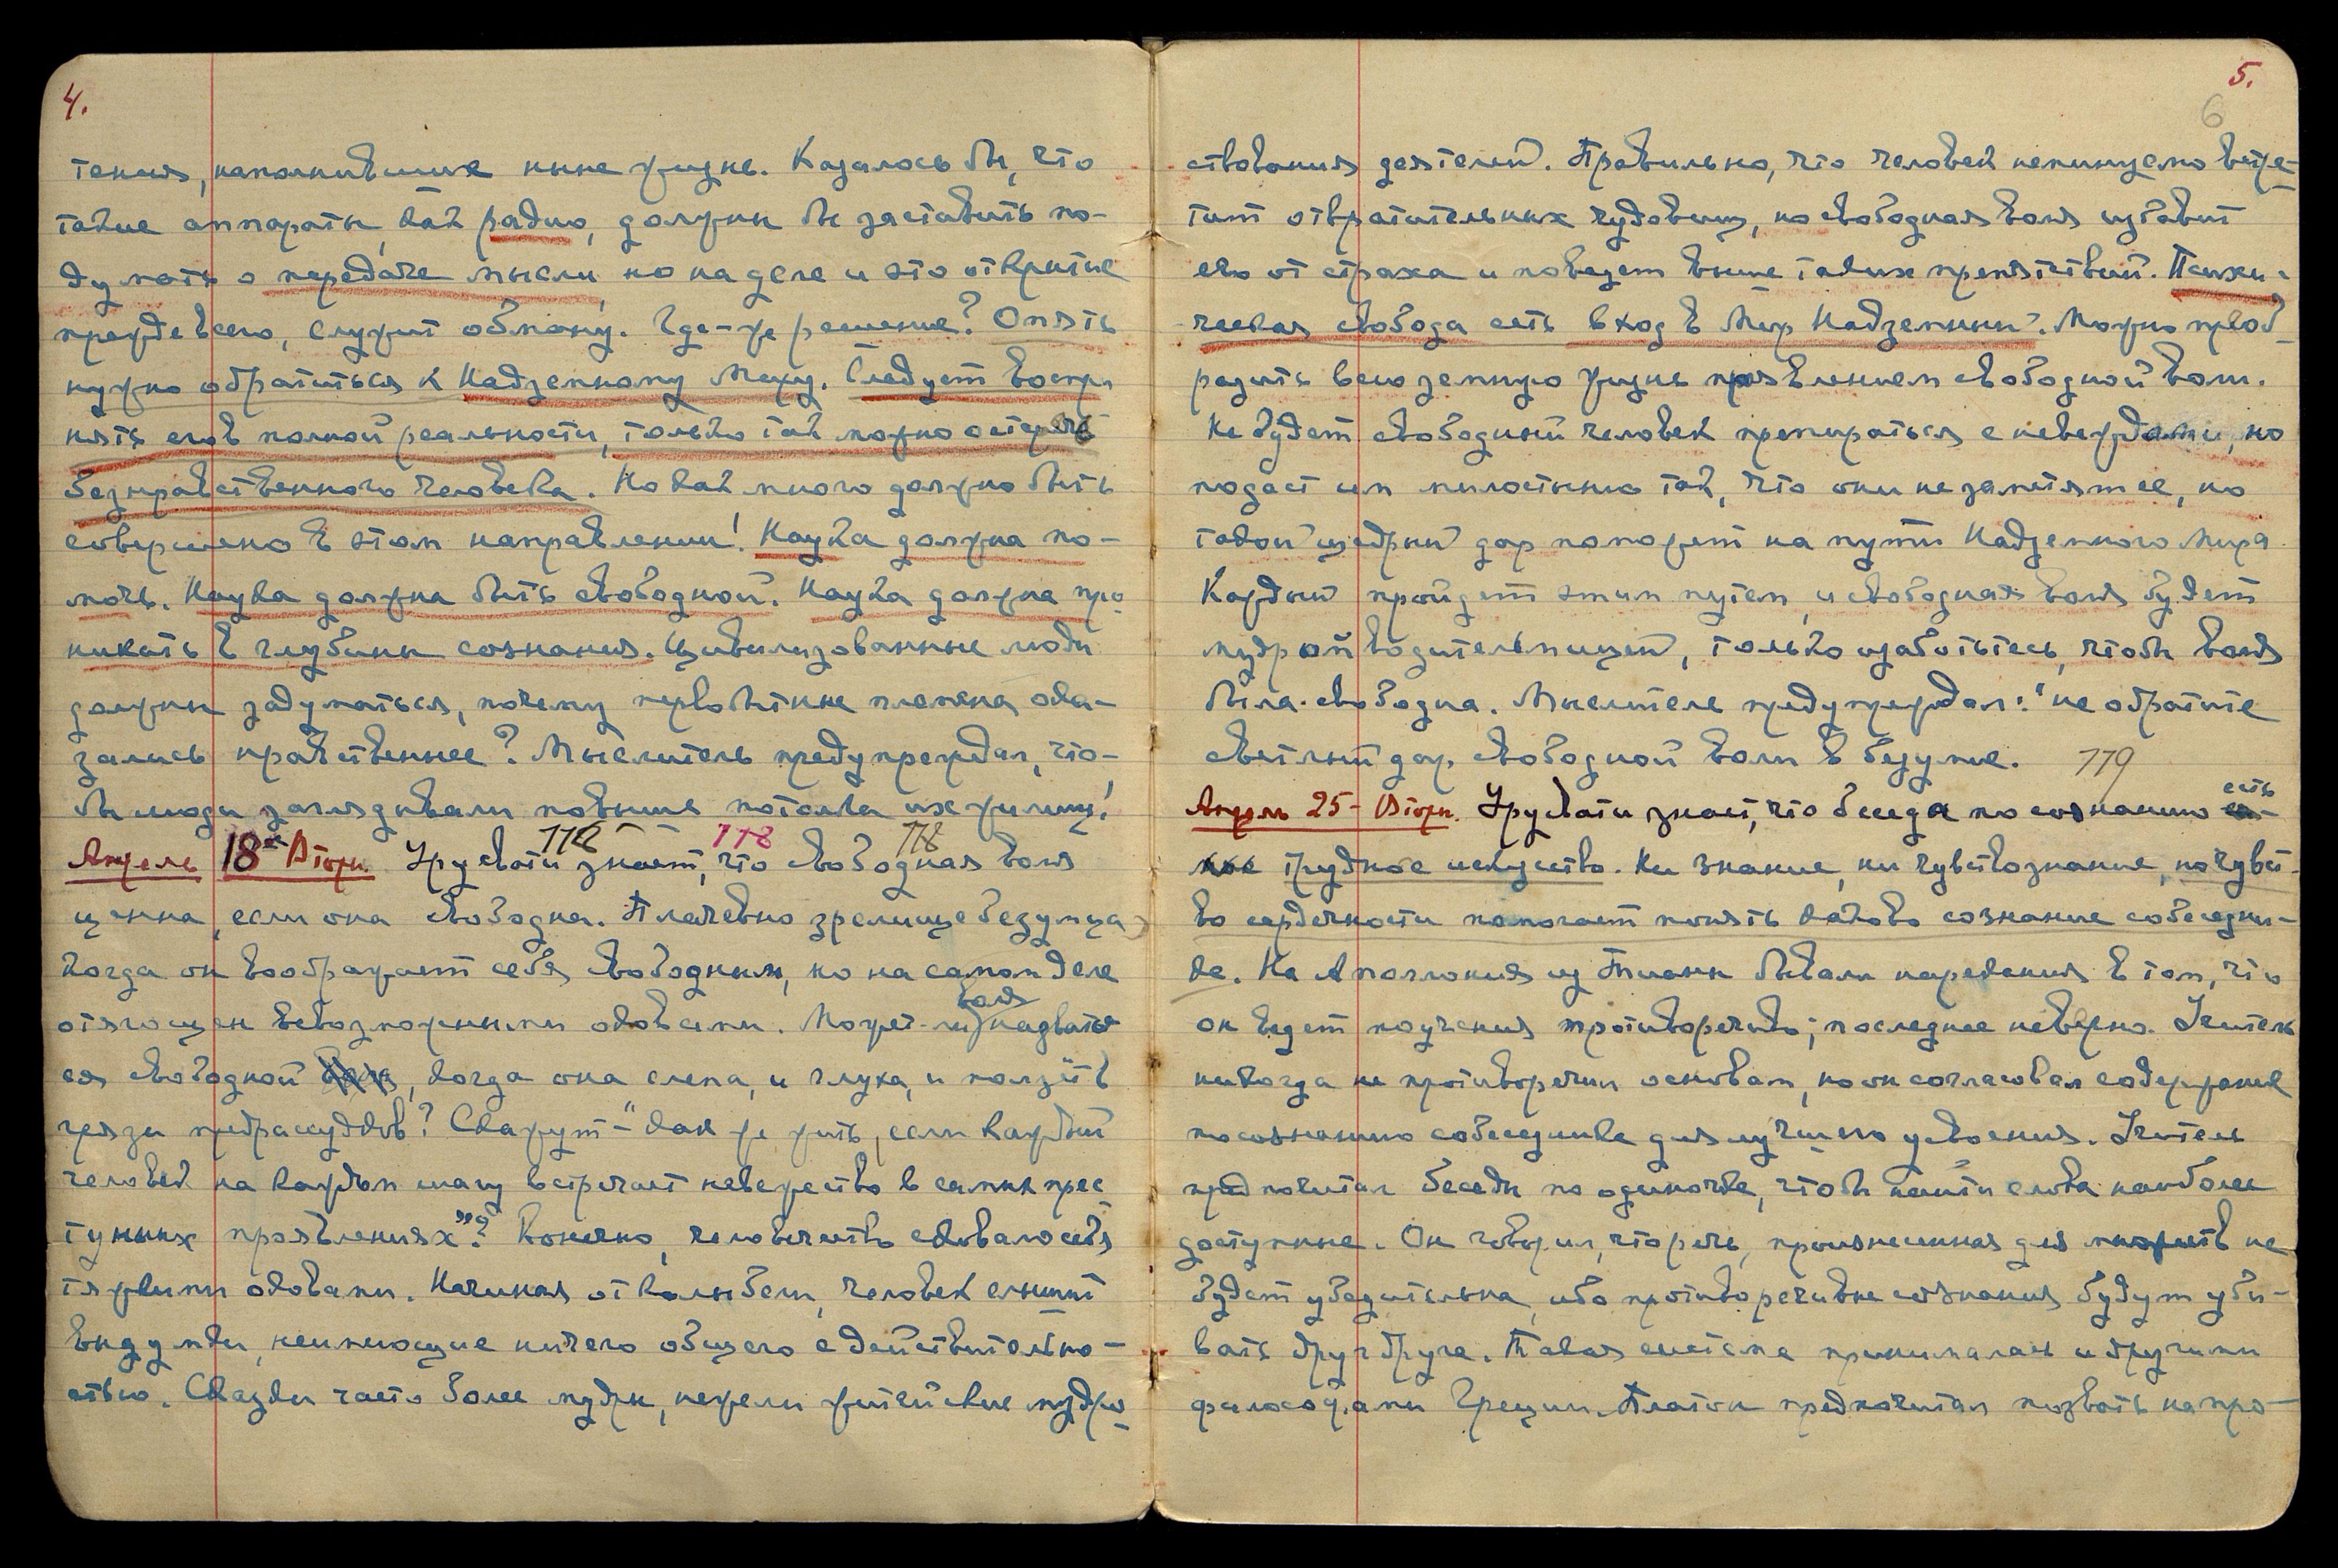 4.
тения, наполнившие ныне жизнь. Казалось бы, что
такие аппараты, как радио, должны бы заставить по-
думать о передаче мысли, но на деле и это открытие
прежде всего, служит обману. Где-же решение? Опять
нужно обратиться к Надземному Миру. Следует воспри
нять его в полной реальности, только так можно остеречь
безнравственного человека. Но как много должно быть
совершено в этом направлении! Наука должна по-
мочь. Наука должна быть свободной. Наука должна про
никать в глубины сознания. Цивилизованные люди
должны задуматься, почему первобытные племена ока-
зались нравственнее? Мыслитель предупреждал, что-
бы люди заглядывали повыше потолка их жилищ!
118 118 118
Апрель 18ое Вторн. Урусвати знает, что свободная воля
ценна, если она свободна. Плачевно зрелище безумца,
когда он воображает себя свободным, но на самом деле
отягощен всевозможными оковами. Может-ли воля назвать
ся свободной, когда она слепа, и глуха, и ползёт в
грязи предрассудков? Скажут-"как же жить, если каждый
человек на каждом шагу встречает невежество в самых прес
тупных проявлениях"? Конечно, человечество сковало себя
тяжкими оковами. Начиная от колыбели, человек слышит
выдумки, неимеющие ничего общего с действительно-
стью. Сказки часто более мудры, нежели житейские мудрс
5.
6
ствования деятелей. Правильно, что человек неминуемо встре-
тит отвратительных чудовищ, но свободная воля избавит
его от страха и поведет выше таких препятствий. Психи-
ческая свобода есть вход в Мир Надземный. Можно преоб-
разить всю земную жизнь проявлением свободной воли.
Не будет свободный человек препираться с невеждами, но
подаст им милостыню так, что они не заметят ее, но
такой щедрый дар поможет на пути Надземного Мира
Каждый пройдет этим путем, и свободная воля будет
мудрой водительницей, только озаботьтесь, чтобы воля
была свободна. Мыслитель предупреждал: "не обратите
светлый дар свободной воли в безумие. 119
Апрель 25- Вторн. Урусвати знает, что беседа по сознанию есть
трудное искусство. Ни знание, ни чувствознание, но чувст-
во сердечности помогает понять каково сознание собеседни-
ка. На Аполлония из Тианы бывали нарекания в том, что
он ведет поучения противоречиво; последнее неверно. Учитель
никогда не противоречил основам, но он согласовал содержание
по сознанию собеседника для лучшего усвоения. Учитель
предпочитал беседы по одиночке, чтобы найти слова наиболее
доступные. Он говорил, что речь, произнесенная для множеств не
будет убедительна, ибо противоречивые сознания будут уби-
вать друг друга. Такая система принималась и другими
философами Греции. Платон предпочитал позвать на про-